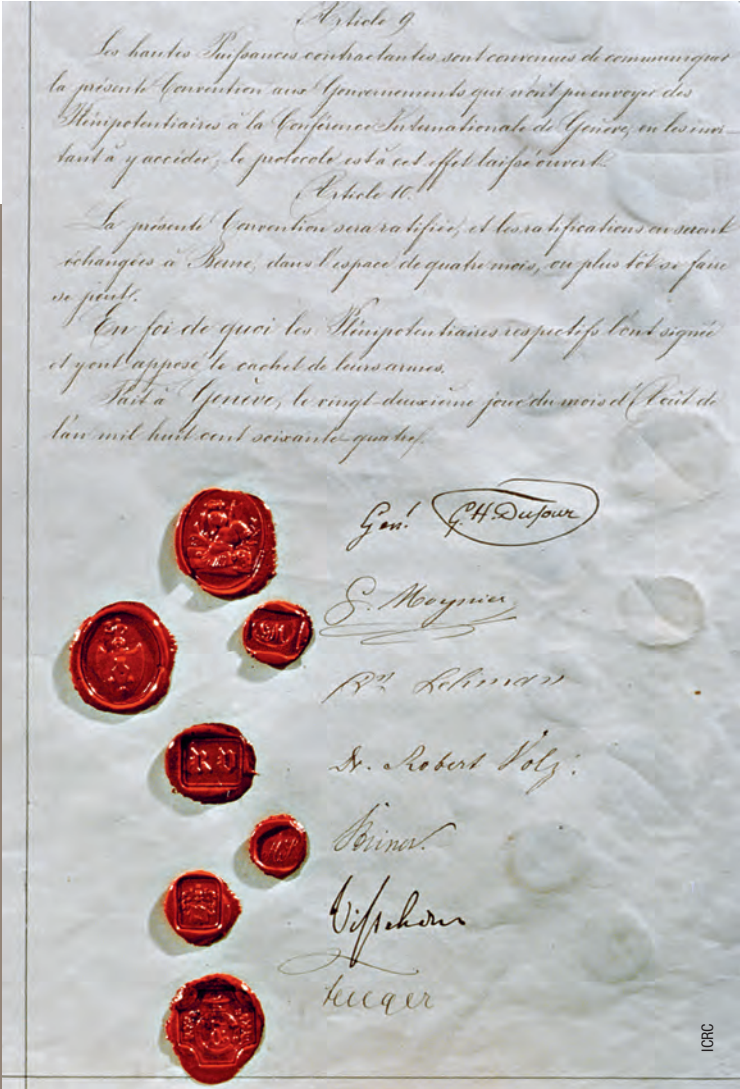 Article 9.
Les hautes Puissances contractantes sont convenues de communiquer
la présente Convention aux Gouvernements qui n'ont pu envoyer des
Plénipotentiaires à la Conférence Internationale de Genève, en les invi-
tant à y accéder; le protocole est à cet effet laissé ouvert.
Article 10.
La présente Convention sera ratifiée, et les ratifications en seront
échangées à Berne, dans l'espace de quatre mois, ou plus tôt si faire
se peut.
En foi de quoi les Plénipotentiaires respectifs l'ont signée
et y ont apposé le cachet de leurs armes.
Fait à Genève, le vingt-deuxième jour du mois d'Août de
l'an mil huit cent soixante-quatre.
Genl. G. H. Dufour
G. Moynier
Dr. Lehmann
RV
Dr. Robert Volz.
Steiner.
Visschers
ICRC